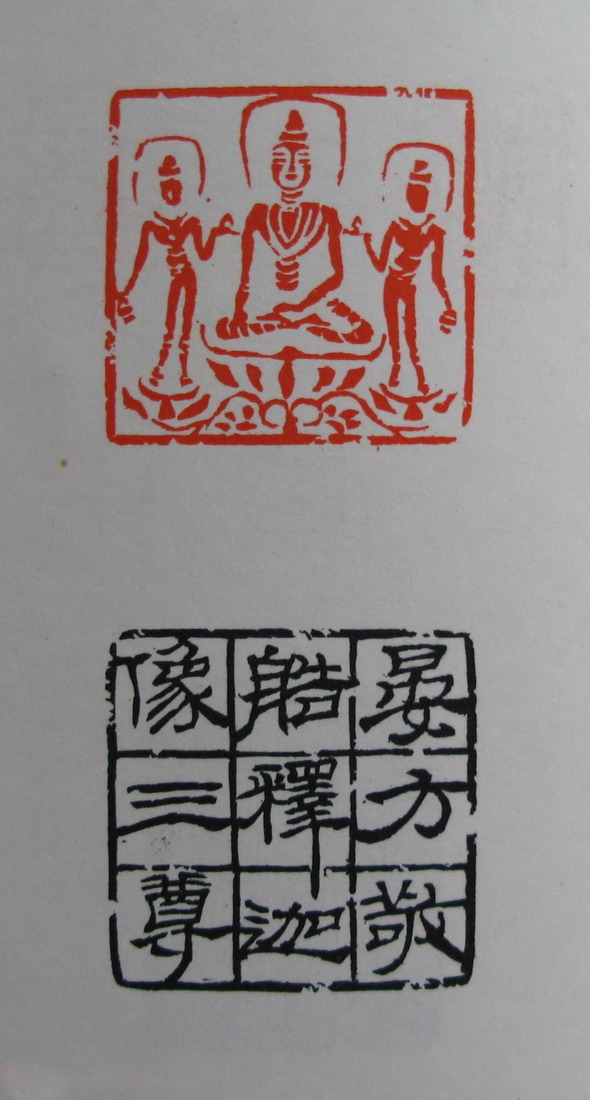 晏方敬
艁釋迦
像三尊